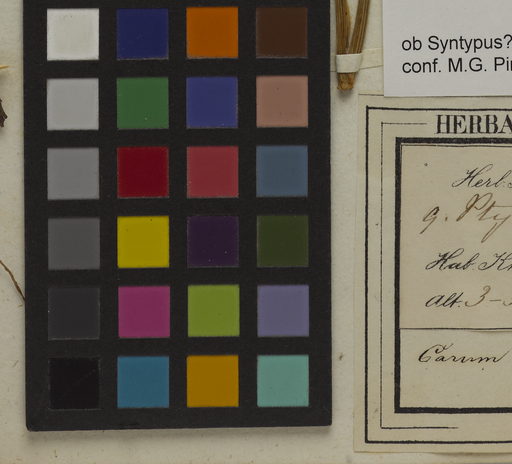 ob Syntypus?
conf. M.G. Pi
HERBA
Herb.
g. Pty
Hab. K
Alt. 3-
Carum